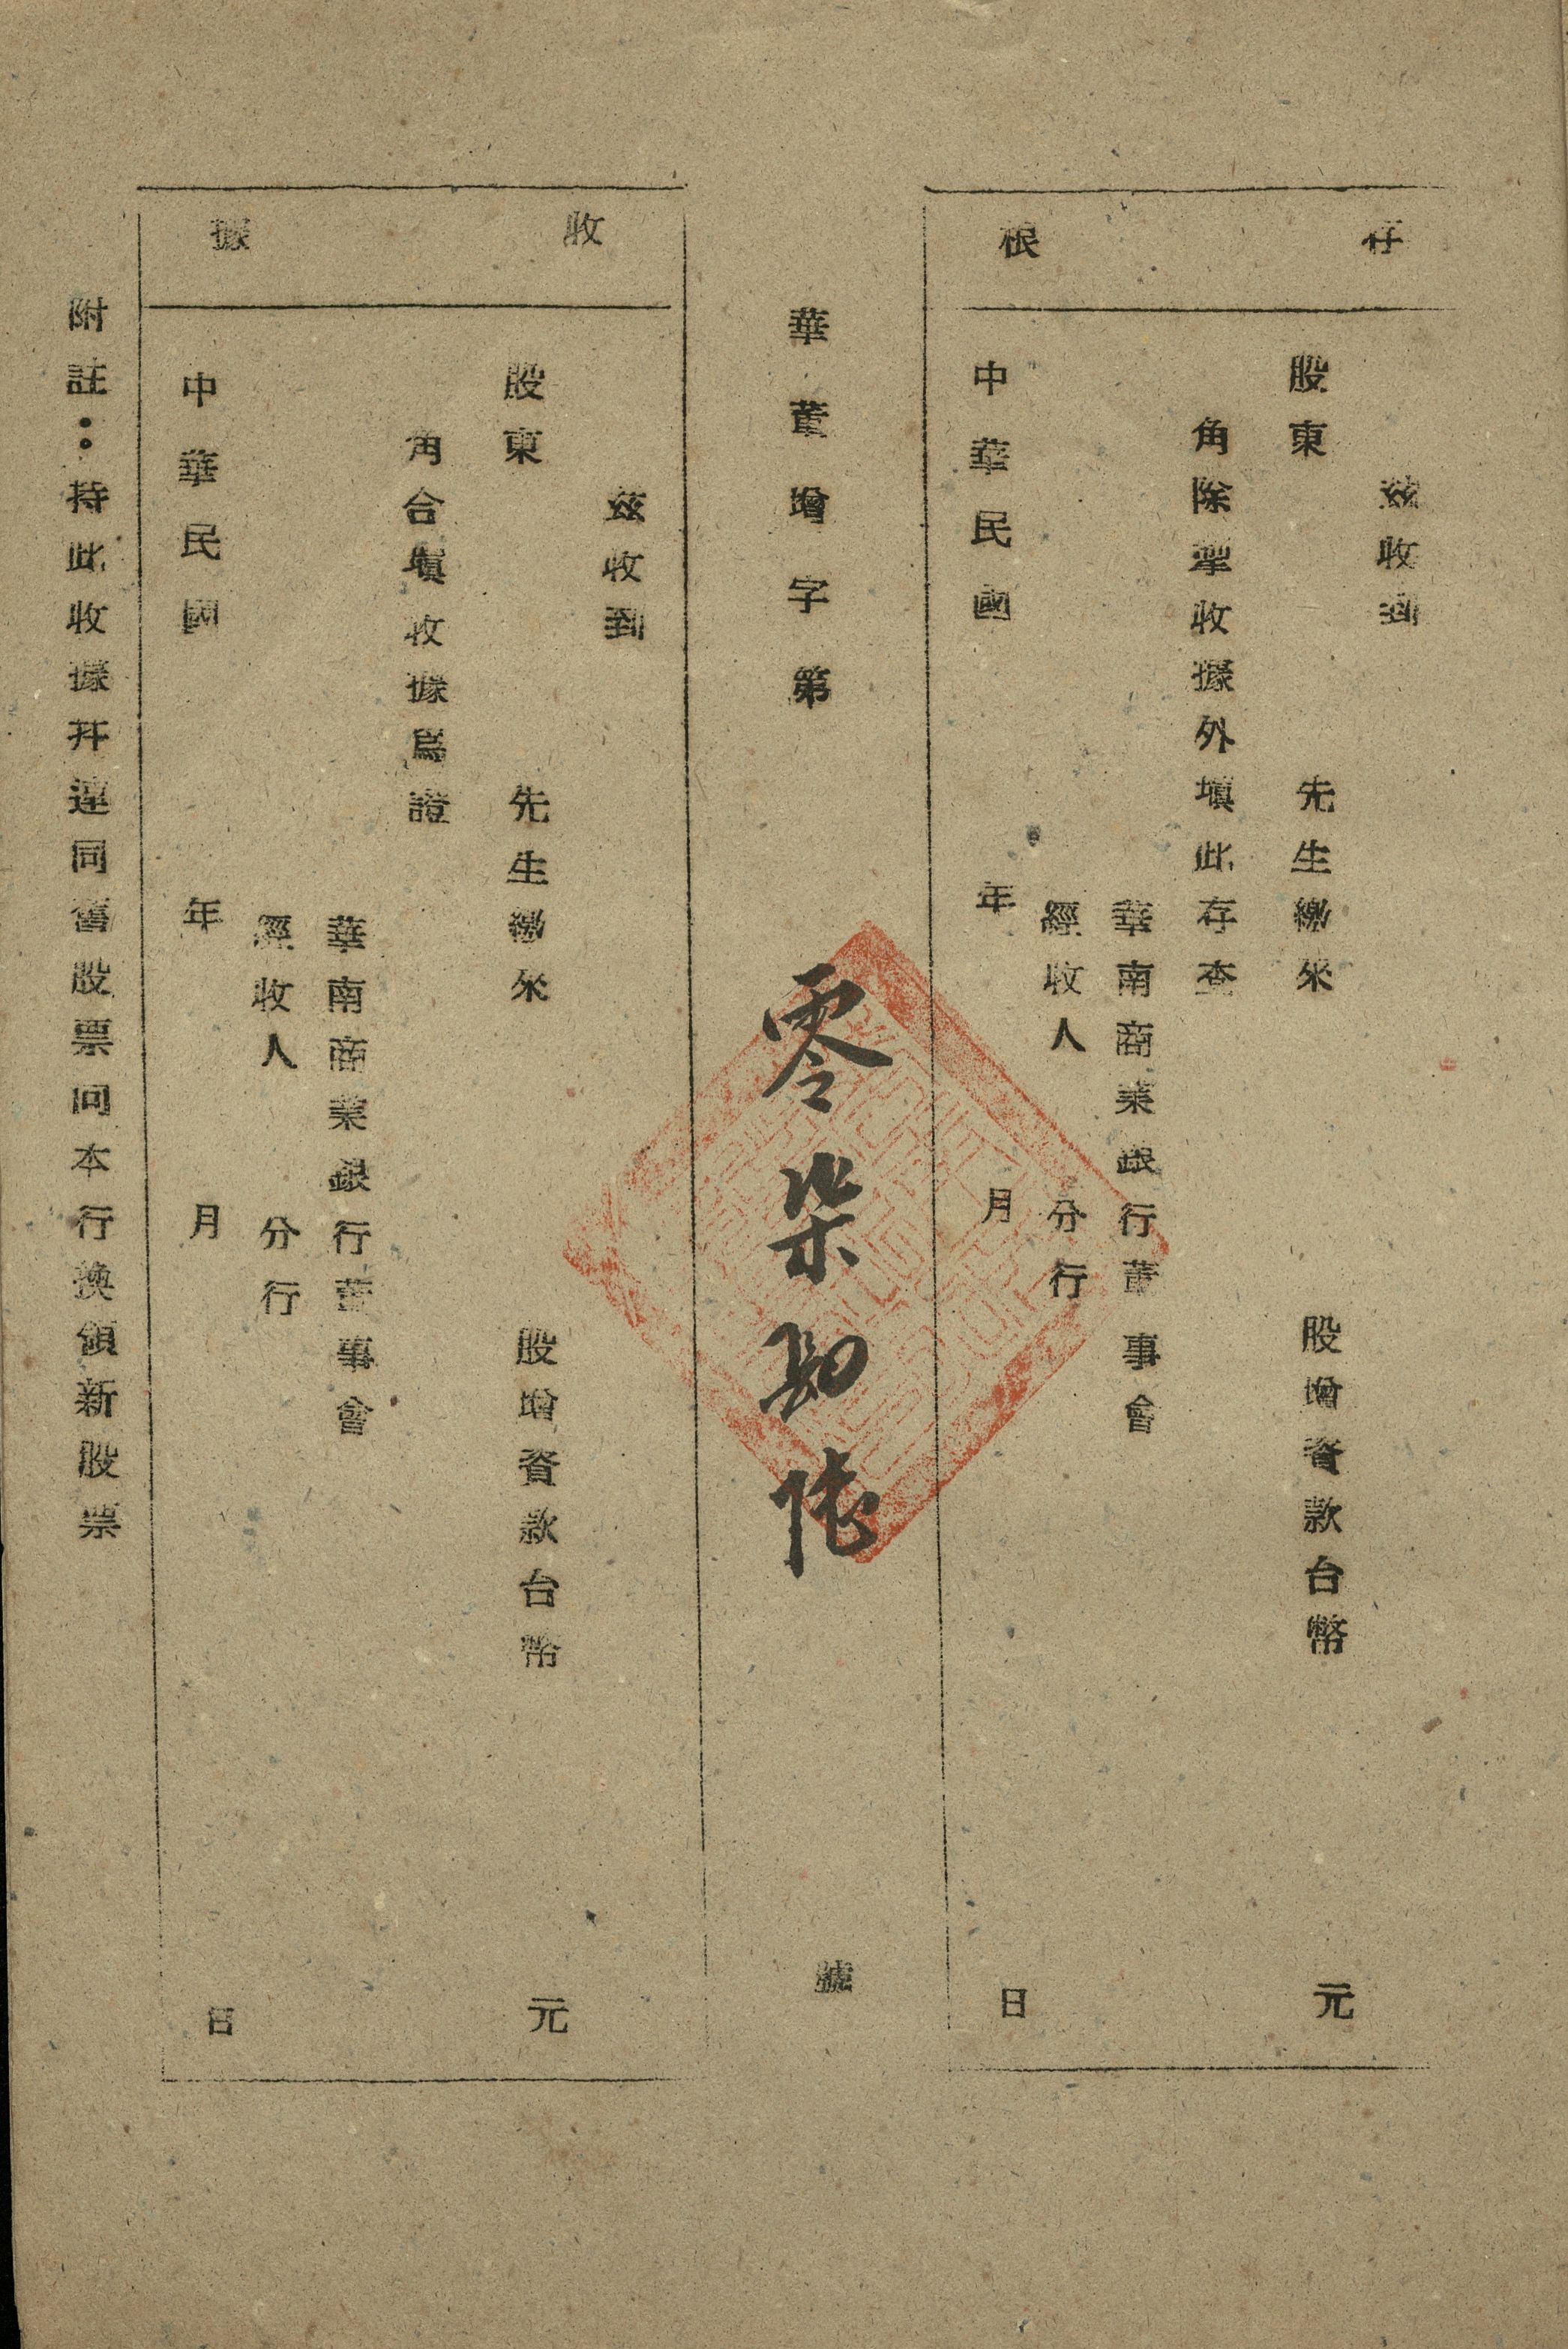 存根
茲收到
股東 先生繳來 股增資款台幣 元
角除掣收據外塡此存查
華南商業銀行董事會
經收人 分行
中華民國 年 月 日
華董增字第 零柒 陸 號
收據
茲收到
股東 先生繳來 股增資款台幣 元
角合塡收據爲證
華南商業銀行董事會
經收人 分行
中華民國 年 月 日
附註：持此收據幷連同舊股票向本行換領新股票